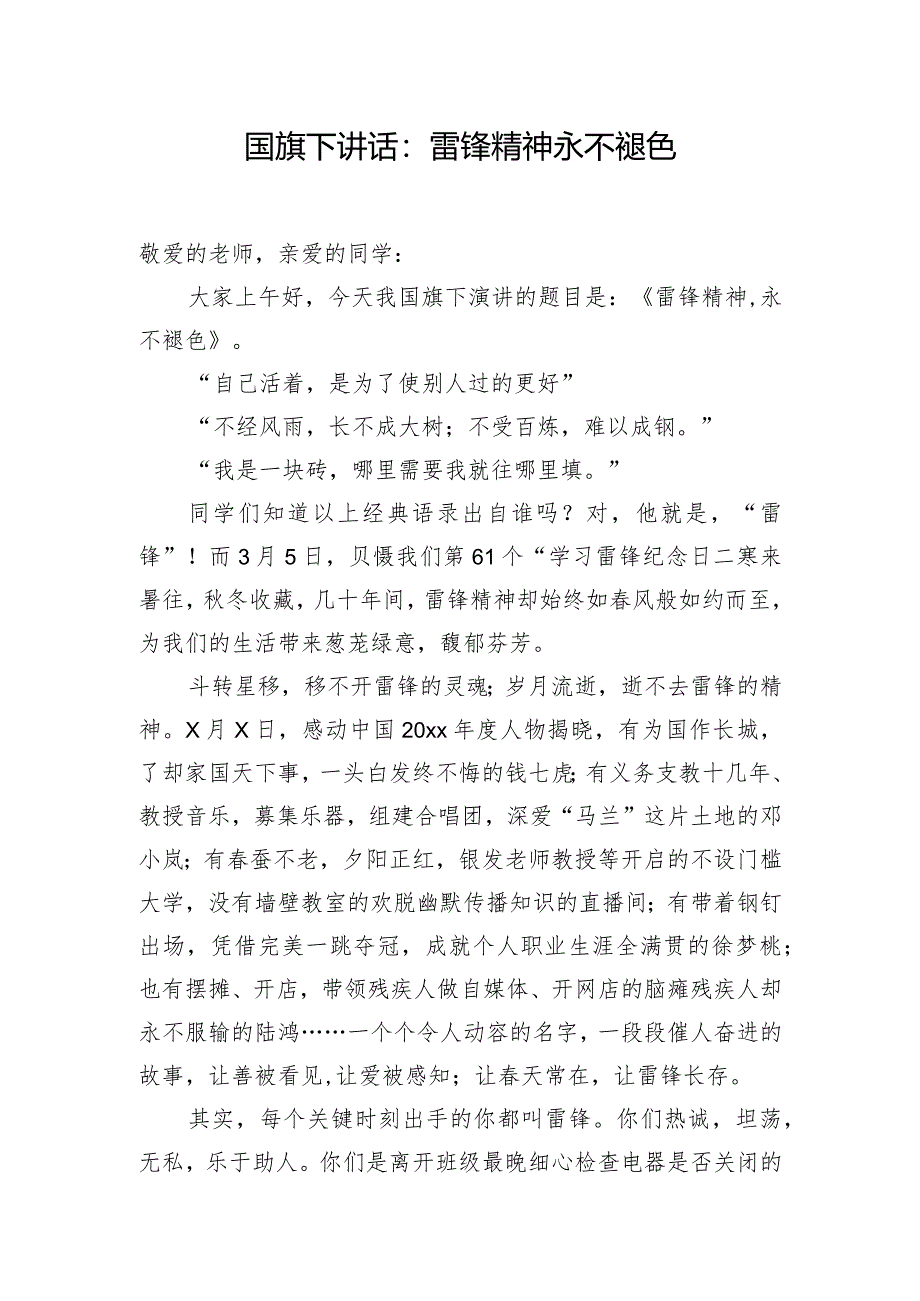 国旗下讲话：雷锋精神永不褪色
敬爱的老师，亲爱的同学：
大家上午好，今天我国旗下演讲的题目是：《雷锋精神,永
不褪色》。
“自己活着，是为了使别人过的更好”
“不经风雨，长不成大树；不受百炼，难以成钢。”
“我是一块砖，哪里需要我就往哪里填。”
同学们知道以上经典语录出自谁吗？对，他就是，“雷
锋”！而3月5日，贝慑我们第61个“学习雷锋纪念日二寒来
暑往，秋冬收藏，几十年间，雷锋精神却始终如春风般如约而至，
为我们的生活带来葱茏绿意，馥郁芬芳。
斗转星移，移不开雷锋的灵魂；岁月流逝，逝不去雷锋的精
神。X月X日，感动中国20xx年度人物揭晓，有为国作长城，
了却家国天下事，一头白发终不悔的钱七虎；有义务支教十几年、
教授音乐，募集乐器，组建合唱团，深爱“马兰”这片土地的邓
小岚；有春蚕不老，夕阳正红，银发老师教授等开启的不设门槛
大学，没有墙壁教室的欢脱幽默传播知识的直播间；有带着钢钉
出场，凭借完美一跳夺冠，成就个人职业生涯全满贯的徐梦桃；
也有摆摊、开店，带领残疾人做自媒体、开网店的脑瘫残疾人却
永不服输的陆鸿……一个个令人动容的名字，一段段催人奋进的
故事，让善被看见,让爱被感知；让春天常在，让雷锋长存。
其实，每个关键时刻出手的你都叫雷锋。你们热诚，坦荡，
无私，乐于助人。你们是离开班级最晚细心检查电器是否关闭的